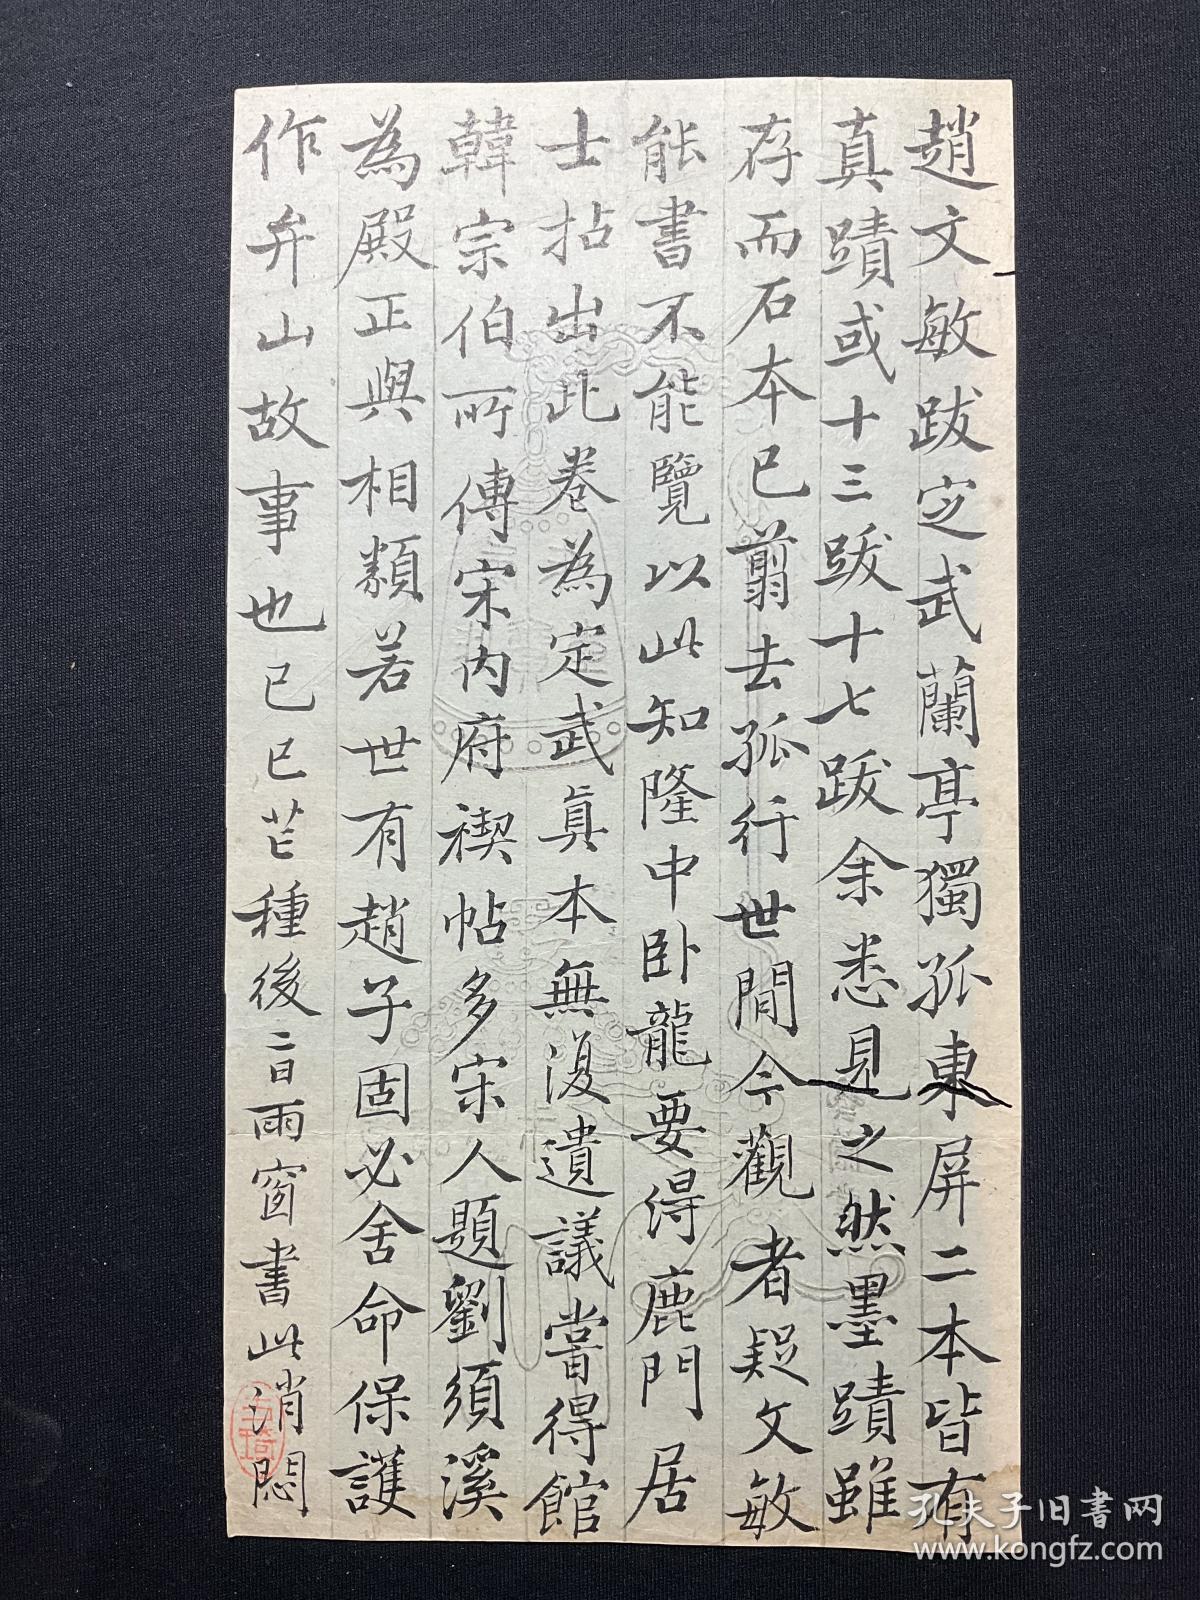 趙文敏跋定武蘭亭獨孤東屏二本皆有
真蹟或十三跋十七跋余悉見之然墨蹟雖
存而石本已翦去孤行世間今觀者疑文敏
能書不能覽以此知隆中卧龍要得鹿門居
士拈出此卷為定武真本無復遺議嘗得館
韓宗伯所傳宋內府禊帖多宋人題劉須溪
為殿正與相類若世有趙子固必舍命保護
作弁山故事也己巳芒種後二日雨窗書此消悶
孔夫子旧书网
www.kongfz.com